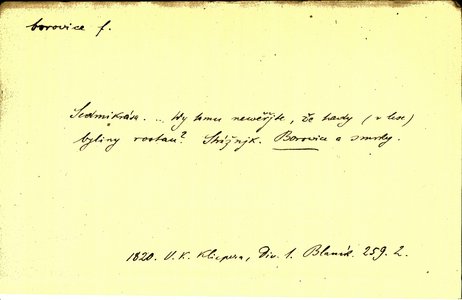 borovice f.
Sedmikrása. .. Wy tomu newěříte, že tady (v lese)
byliny rostau? Strážnjk. Borovice a smrky.
1820. V. K. Klicpera, Div. 1. Blaník. 259. 2.